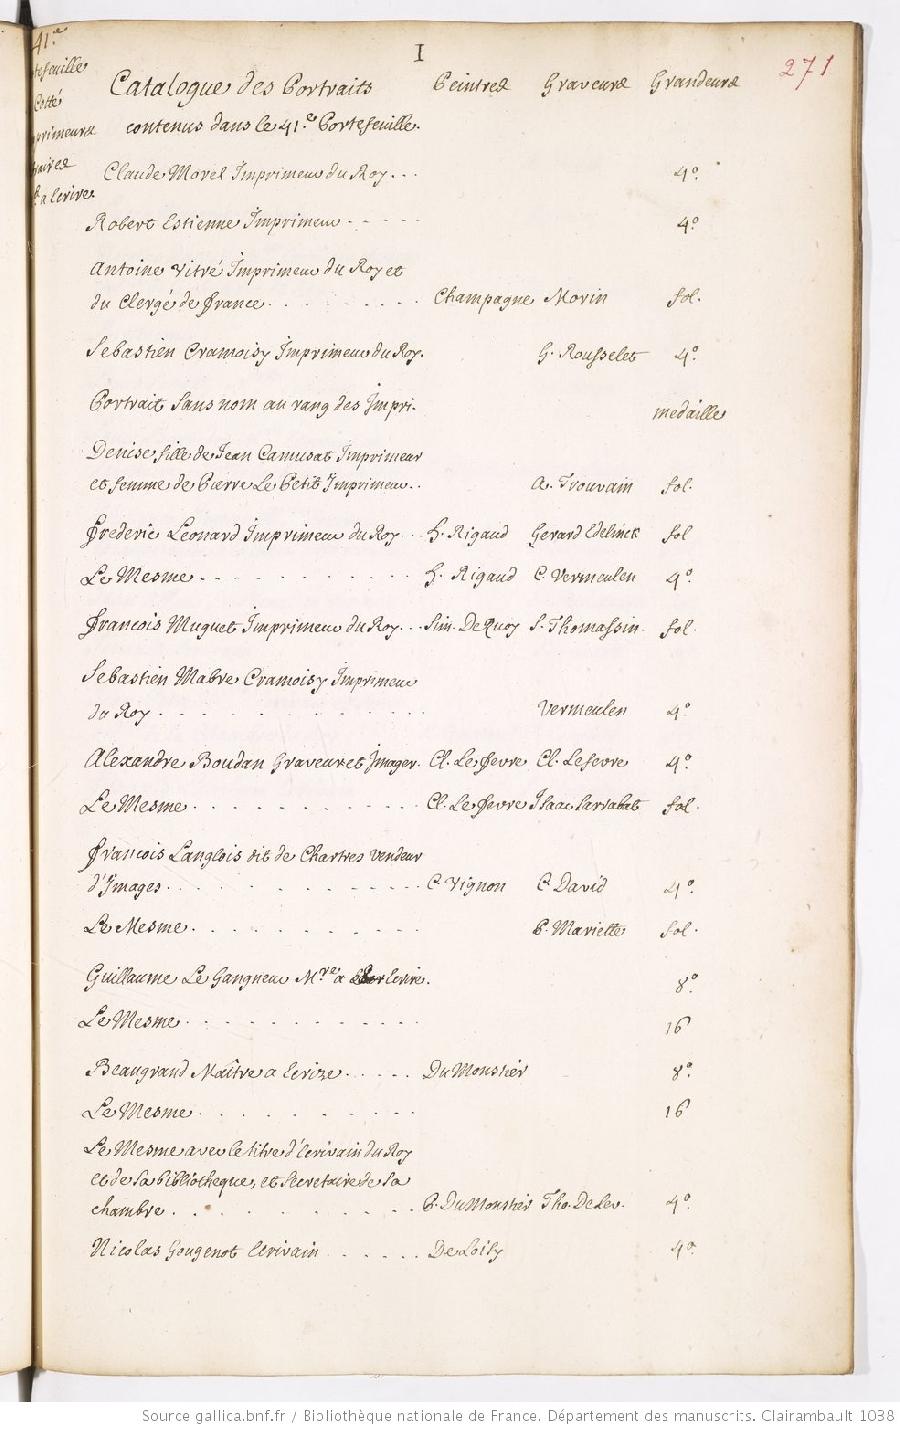 I
271
41.e
Cotté
a Ecrire
Catalogue des Portraits Peintres Graveurs Grandeurs
contenus dans le 41.e Portefeuille.
Claude Morel Imprimeur du Roy . . . 4o.
Robert Estienne Imprimeur - - - - - 4o.
Antoine Vitré Imprimeur du Roy et
du Clergé de France . . . . . . . . Champagne Morin fol.
Sebastien Cramoisy Imprimeur du Roy. G. Rousselet 4o.
Portrait sans nom au rang des Impri. medaille
Denise fille de Jean Camusat Imprimeur
et femme de Pierre Le Petit Imprimeur. . A. Trouvain fol.
Frederic Leonard Imprimeur du Roy . . H. Rigaud Gerard Edelinck fol
Le Mesme . . . . . . . . . . . H. Rigaud C. Vermeulen 4o.
François Muguet Imprimeur du Roy . . . Sim. De Quoy S. Thomassin fol.
Sebastien Mabre Cramoisy Imprimeur
du Roy . . . . . . . . . . . Vermeulen 4o.
Alexandre Boudan Graveur et Imager. Cl. Le Fevre Cl. Lefevre 4o.
Le Mesme . . . . . . . . . . . Cl. Le Fevre Isaac Sarrabat fol.
François Langlois dit de Chartres vendeur
d'Images . . . . . . . . . . . C. Vignon C. David 4o.
Le Mesme . . . . . . . . . . . P. Mariette fol.
Guillaume Le Gangneur Mre a Ecrire. 8o.
Le Mesme . . . . . . . . . . 16
Beaugrand Maître a Ecrire . . . . . Du Monstier 8o.
Le Mesme . . . . . . . . . . 16
Le Mesme avec le titre d'Ecrivain du Roy
et de sa Bibliotheque, et Secretaire de sa
chambre . . . . . . . . . . . P. Du Monstier Tho. De Leu. 4o.
Nicolas Gougenot Ecrivain . . . . . De Loisy 4o.
Source gallica.bnf.fr / Bibliothèque nationale de France. Département des manuscrits. Clairambault 1038